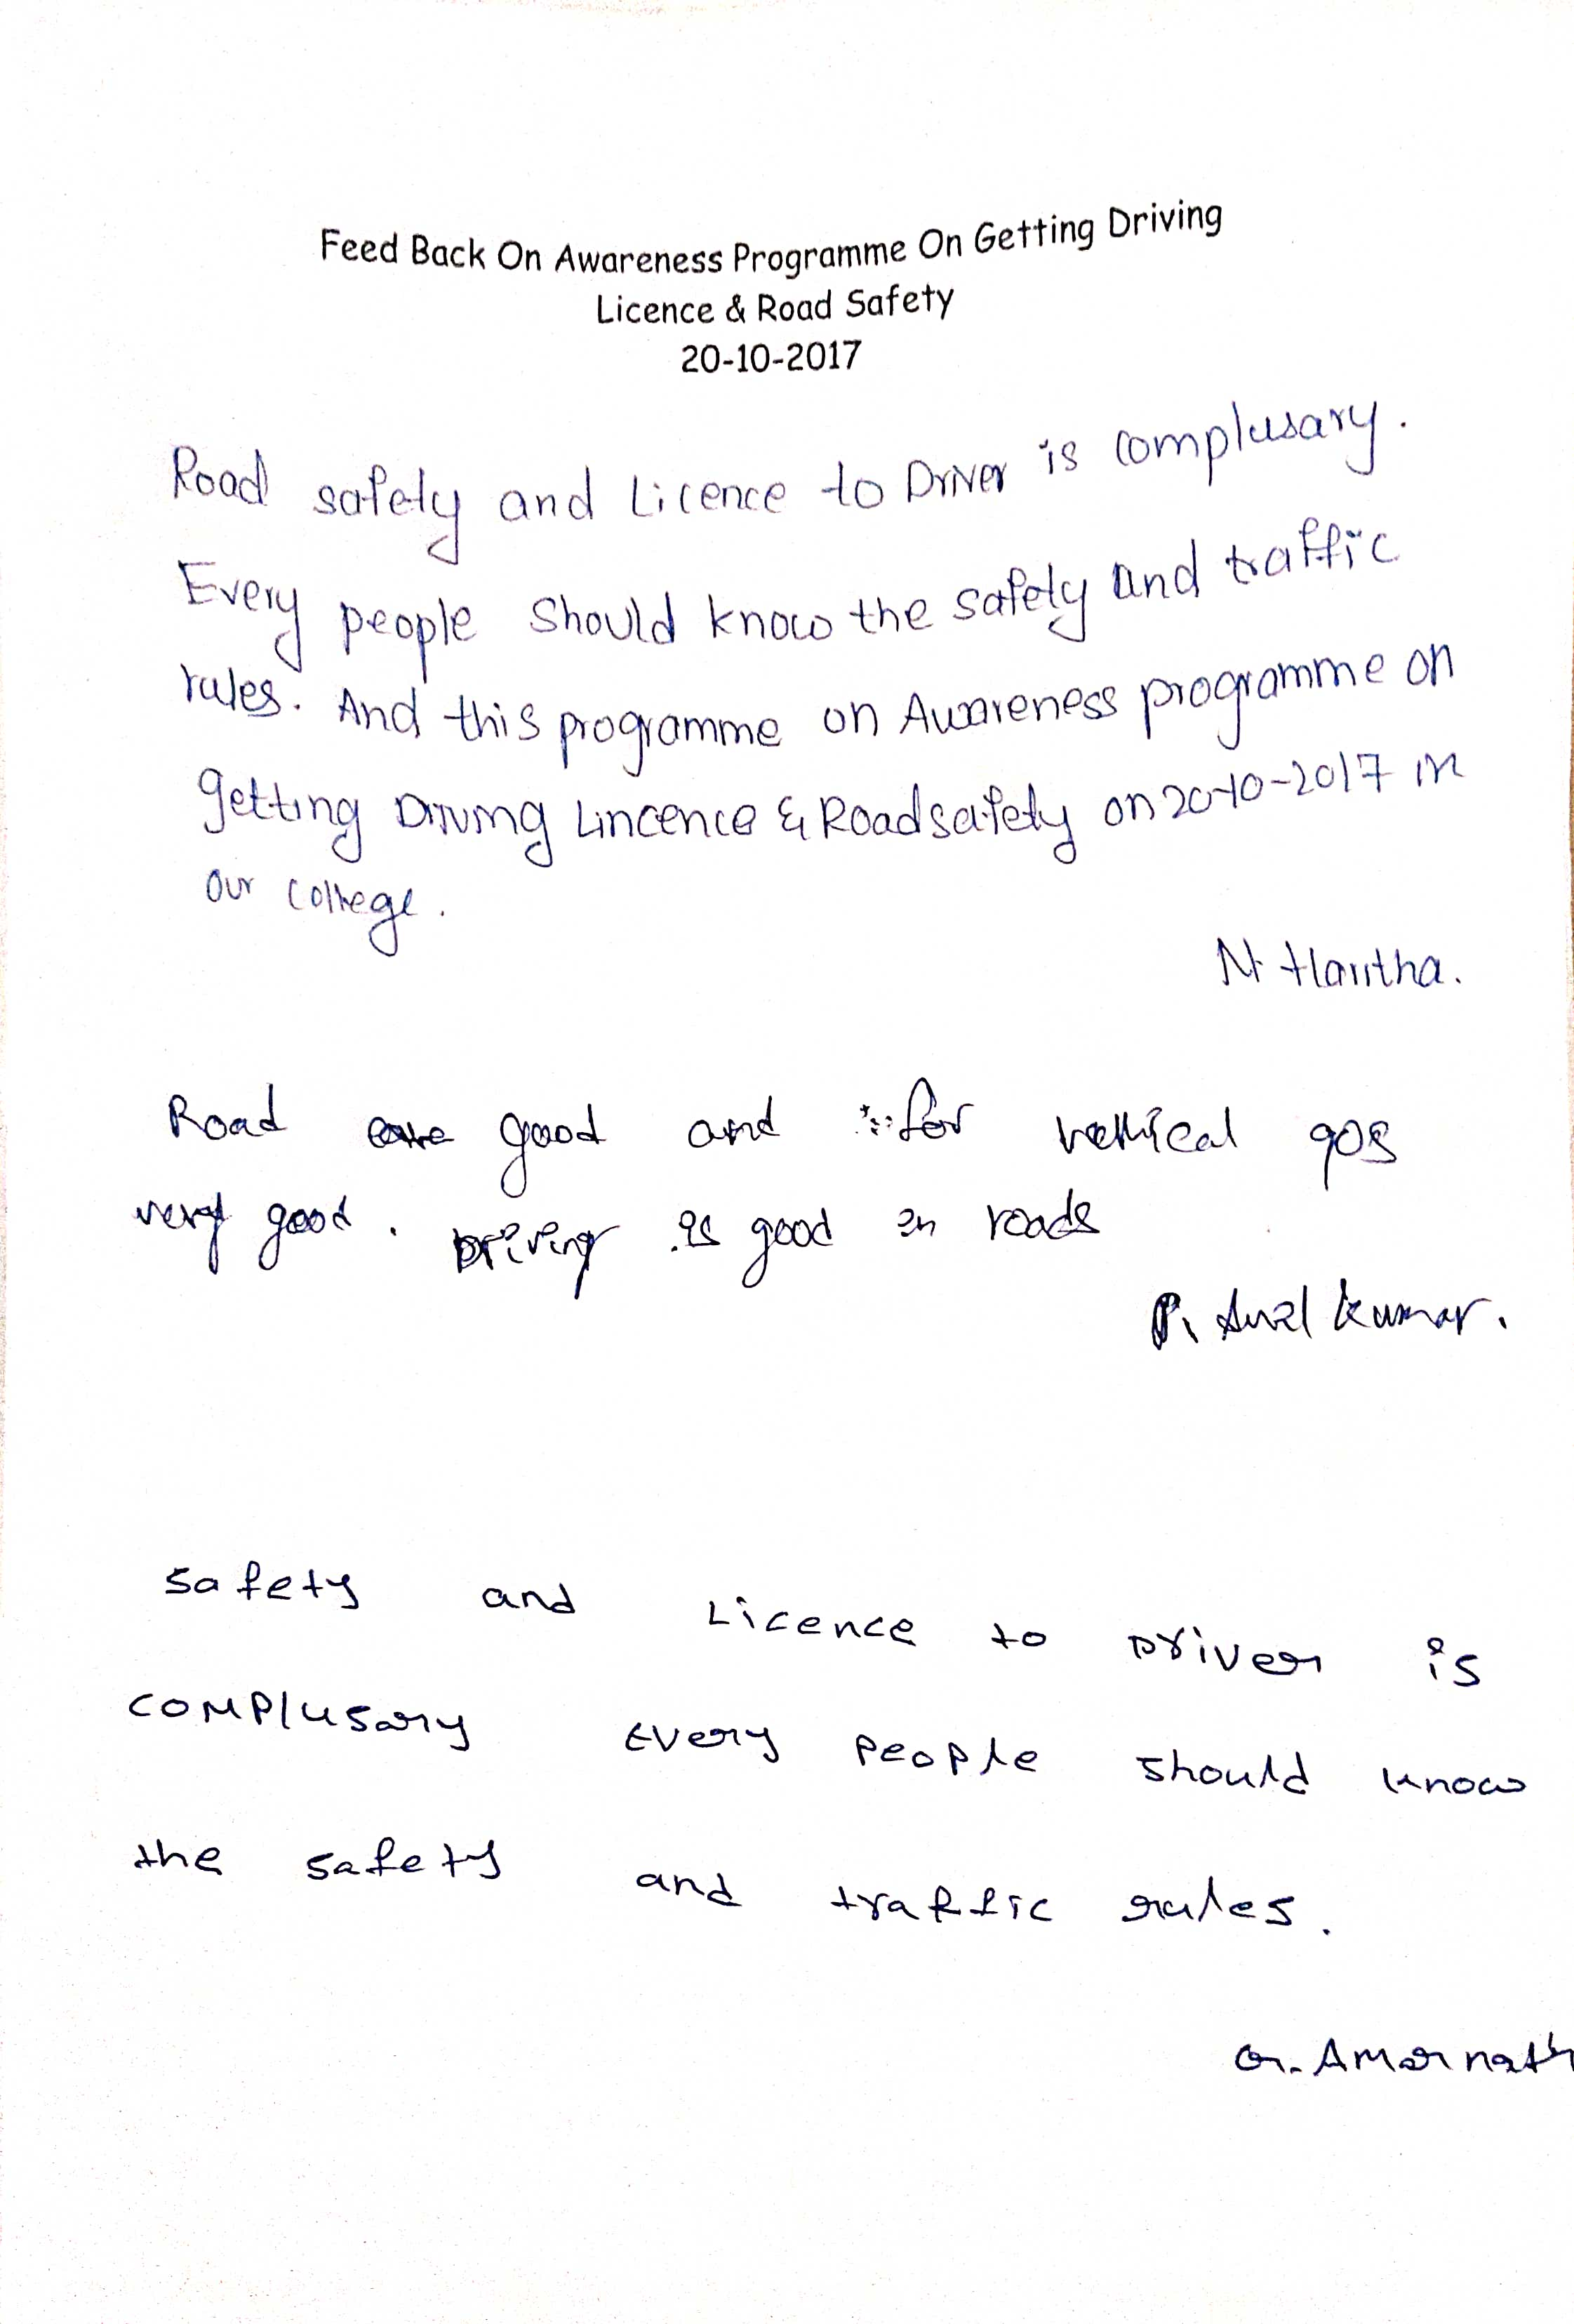 Feed Back On Awareness Programme On Getting Driving
Licence & Road Safety
20-10-2017
Road safety and Licence to Driver is complusary.
Every people should know the safety and traffic
rules. And this programme on Awareness programme on
getting Driving Lincence & Road safety on 20-10-2017 in
our college.
N. Haritha.
Road are good and for vehical gos
very good. Driving is good in roads
P. Anil kumar.
safety and Licence to Driver is
complusary Every people should know
the safety and traffic rules.
G. Amarnath